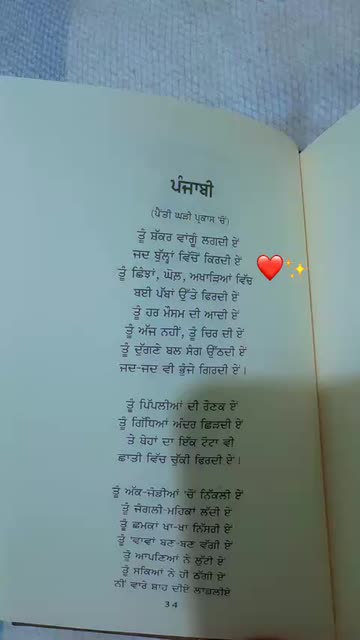 ਪੰਜਾਬੀ
(ਪੈਂਤੀ ਘੜੀ ਪ੍ਰਕਾਸ 'ਚੋਂ)
ਤੂੰ ਸ਼ੱਕਰ ਵਾਂਗੂੰ ਲਗਦੀ ਏਂ
ਜਦ ਬੁੱਲ੍ਹਾਂ ਵਿੱਚੋਂ ਕਿਰਦੀ ਏਂ
ਤੂੰ ਛਿੰਝਾਂ, ਘੋਲ, ਅਖਾੜਿਆਂ ਵਿੱਢ
ਬਈ ਪੱਬਾਂ ਉੱਤੇ ਫਿਰਦੀ ਏਂ
ਤੂੰ ਹਰ ਮੌਸਮ ਦੀ ਆਦੀ ਏਂ
ਤੂੰ ਅੱਜ ਨਹੀਂ, ਤੂੰ ਚਿਰ ਦੀ ਏਂ
ਤੂੰ ਦੁੱਗਣੇ ਬਲ ਸੰਗ ਉੱਠਦੀ ਏਂ
ਜਦ-ਜਦ ਵੀ ਭੁੰਜੇ ਗਿਰਦੀ ਏਂ।
ਤੂੰ ਪਿੱਪਲੀਆਂ ਦੀ ਰੌਣਕ ਏਂ
ਤੂੰ ਗਿੱਧਿਆਂ ਅੰਦਰ ਛਿੜਦੀ ਏਂ
ਤੇ ਥੇਹਾਂ ਦਾ ਇੱਕ ਟੋਟਾ ਵੀ
ਛਾਤੀ ਵਿੱਚ ਚੁੱਕੀ ਫਿਰਦੀ ਏਂ।
ਤੂੰ ਅੱਕ-ਜੰਡੀਆਂ 'ਚੋਂ ਨਿੱਕਲੀ ਏਂ
ਤੂੰ ਜੰਗਲੀ-ਮਹਿਕਾਂ ਲੱਦੀ ਏਂ
ਤੂੰ ਛਮਕਾਂ ਖਾ-ਖਾ ਨਿੱਸਰੀ ਏਂ
ਤੂੰ 'ਵਾਵਾਂ ਬਣ-ਬਣ ਵੱਗੀ ਏਂ
ਤੂੰ ਆਪਣਿਆਂ ਨੇ ਲੁੱਟੀ ਏਂ
ਤੂੰ ਸਕਿਆਂ ਨੇ ਹੀ ਠੱਗੀ ਏਂ
ਨੀਂ ਵਾਰੇ ਸ਼ਾਹ ਦੀਏ ਲਾਡਲੀਏ
34